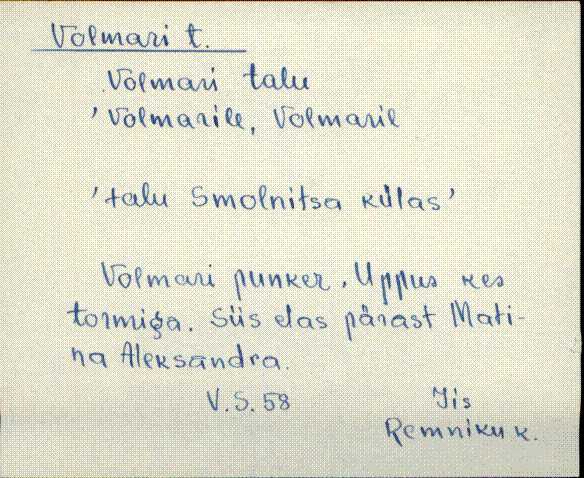 Volmari t.
Volmari talu
'Volmarile, Volmarile
'talu Smolnitsa külas'
Volmari punker. Uppus kes
tormiga. Siis elas pärast Mati-
na Aleksandra.
V.S. 58 Iis
Remniku k.